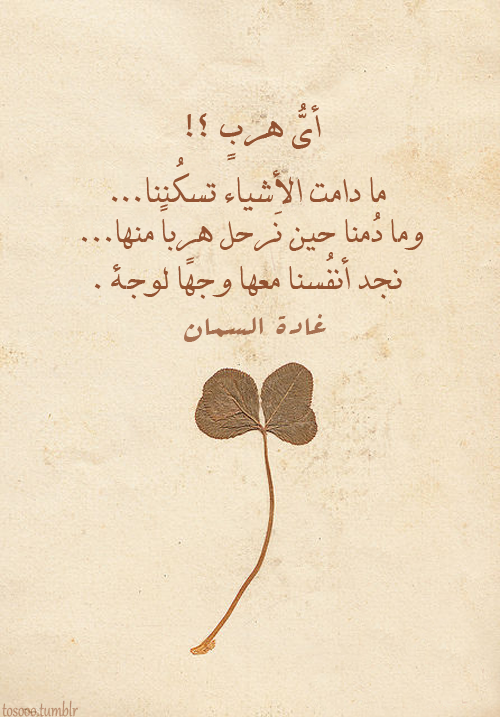 أىُّ هربٍ ؟!
ما دامت الأشياء تسكُننا...
وما دُمنا حين نَرحل هرباً منها...
نجد أنفُسنا معها وجهًا لوجهٔ .
غادة السمان
tosooo.tumblr